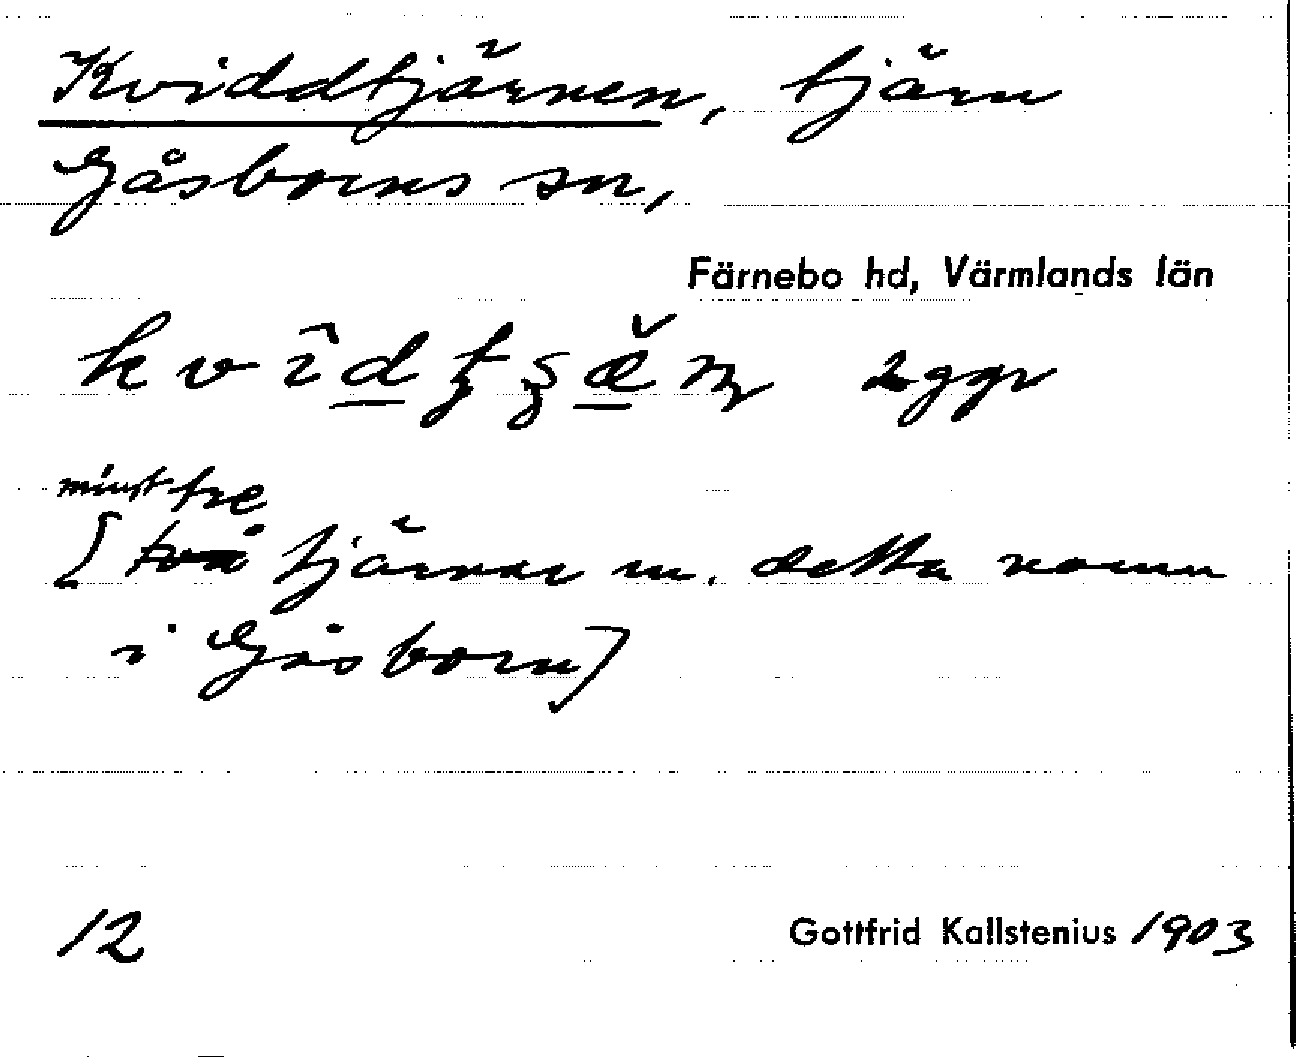 Kviddtjärnen, tjärn
Gåsborns sn,
Färnebo hd, Värmlands län
2 ggr
minst tre
[två tjärnar m. detta namn
i Gåsborn]
12 Gottfrid Kallstenius 1903